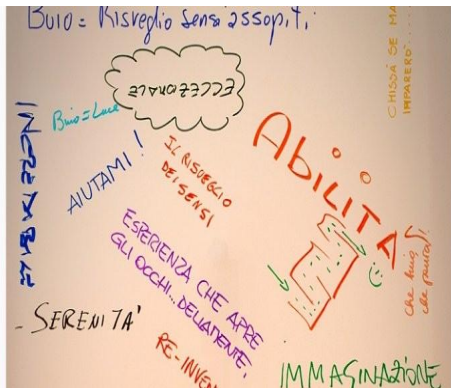 BUIO = RISVEGLIO SENSI ASSOPITI
ECCEZIONALE
CHISSÀ SE MA
IMPARERÒ.....
Buio = Luce
AIUTAMI!
IL RISVEGLIO
DEI SENSI
ABILITÀ
ESPERIENZA CHE APRE
GLI OCCHI...DELLA MENTE.
che buio
che paura!!
- SERENITA'
RE-INVEN
IMMAGINAZIONE